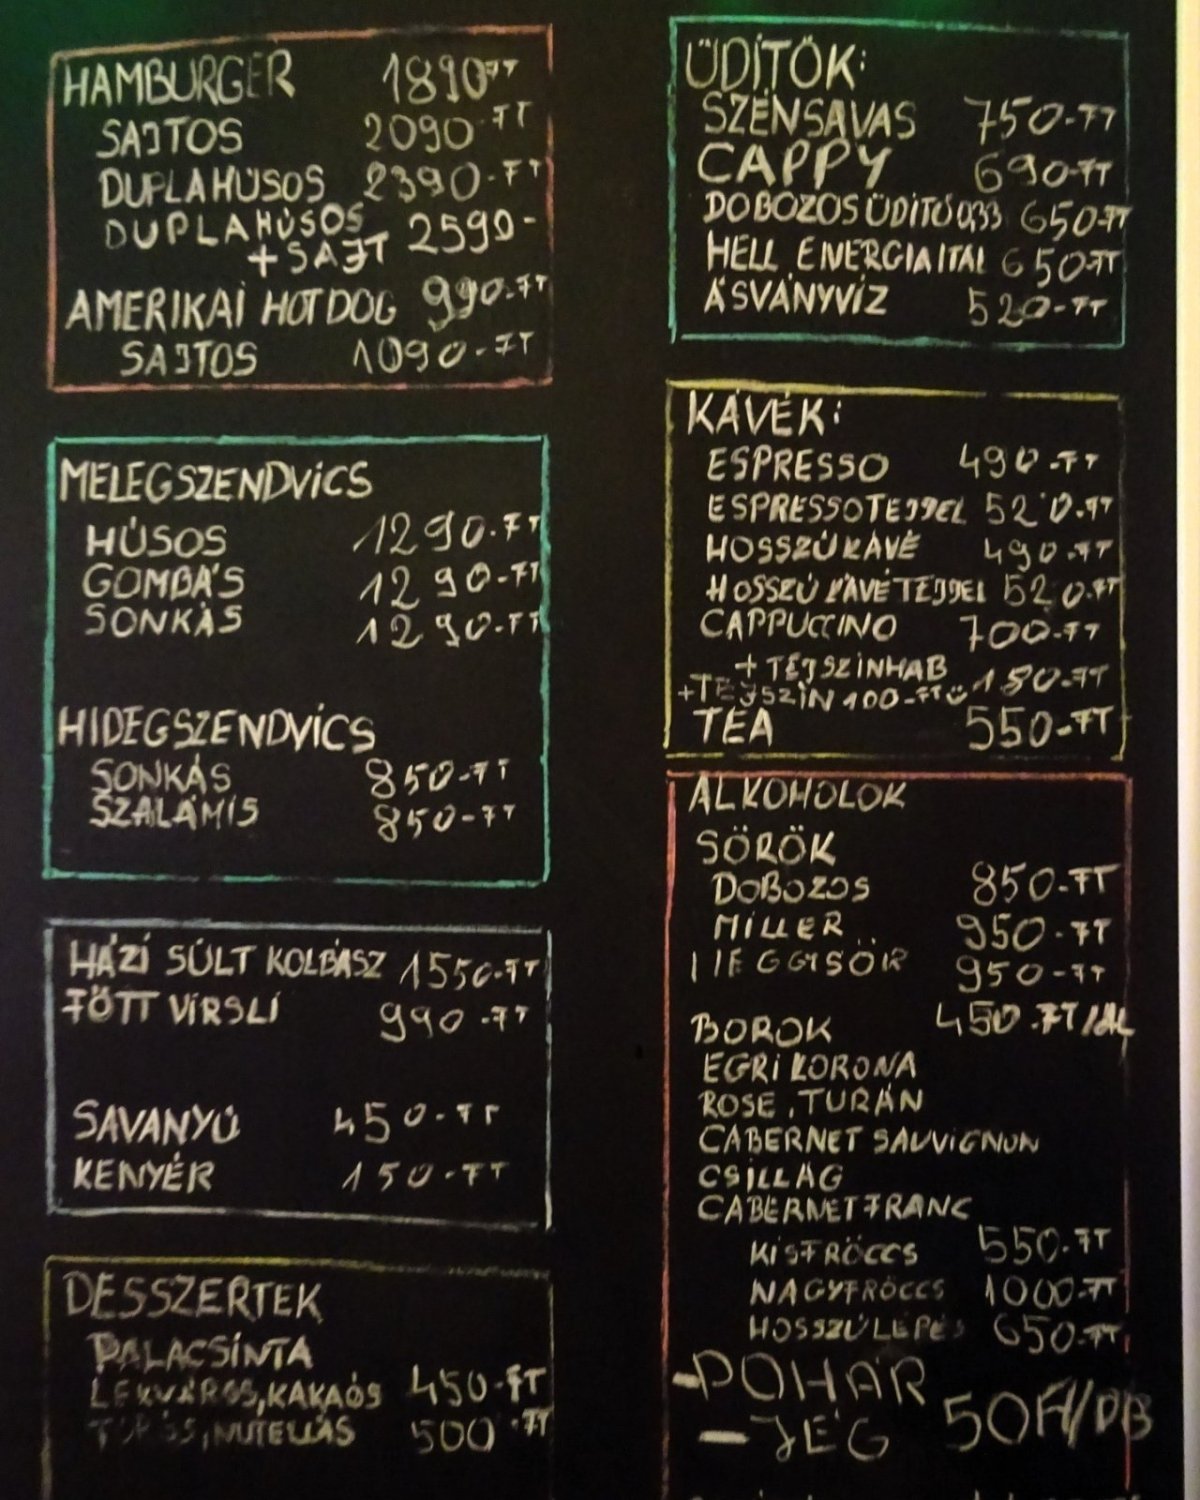 HAMBURGER 1890FT
SAJTOS 2090-FT
DUPLAHÚSOS 2390-FT
DUPLAHÚSOS 2590-
+SAJT
AMERIKAI HOTDOG 990-FT
SAJTOS 1090-FT
MELEGSZENDVICS
HÚSOS 1290-FT
GOMBÁS 1290-FT
SONKÁS 1290-FT
HIDEGSZENDVICS
SONKÁS 850-FT
SZALÁMIS 850-FT
HÁZI SÜLT KOLBÁSZ 1550-FT
FŐTT VIRSLI 990-FT
SAVANYÚ 450-FT
KENYÉR 150-FT
DESSZERTEK
PALACSINTA
LEKVÁROS, KAKAÓS 450-FT
TÚRÓS, NUTELLÁS 500-FT
ÜDÍTŐK:
SZÉNSAVAS 750-FT
CAPPY 690-FT
DOBOZOS ÜDÍTŐ 0,33 650-FT
HELL ENERGIAITAL 650-FT
ÁSVÁNYVÍZ 520-FT
KÁVÉK:
ESPRESSO 490-FT
ESPRESSO TEJJEL 520-FT
HOSSZÚ KÁVÉ 490-FT
HOSSZÚ KÁVÉ TEJJEL 520-FT
CAPPUCCINO 700-FT
+TEJSZÍNHAB 180-FT
+TEJSZÍN 100-FT
TEA 550-FT
ALKOHOLOK
SÖRÖK
DOBOZOS 850-FT
MILLER 950-FT
MEGGYSÖR 950-FT
BOROK 450-FT/dL
EGRI KORONA
ROSE, TURÁN
CABERNET SAUVIGNON
CSILLAG
CABERNET FRANC
KISFRÖCCS 550-FT
NAGYFRÖCCS 1000-FT
HOSSZÚLÉPÉS 650-FT
-POHÁR
-JÉG 50Ft/DB